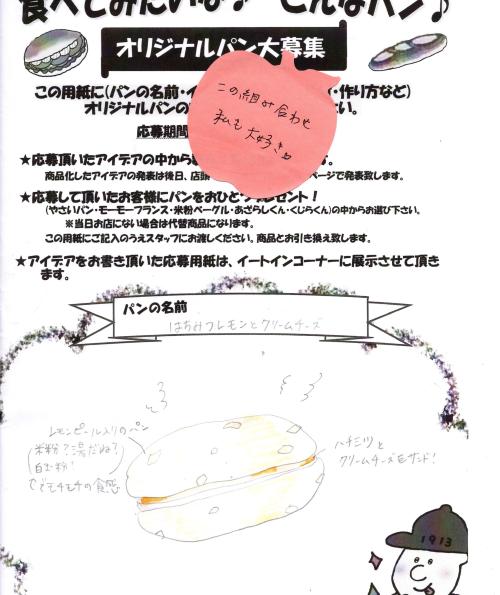 食べてみたいな！ こんなパン♪
オリジナルパン大募集
この用紙に(パンの名前・イ ・作り方など)
オリジナルパンの い。
応募期間
この組み合わせ
私も大好き
★応募頂いたアイデアの中から す。
商品化したアイデアの発表は後日、店頭 ページで発表致します。
★応募して頂いたお客様にパンをおひとつプレゼント！
(やさいパン・モーモーフランス・米粉ベーグル・あざらしくん・くじらくん)の中からお選び下さい。
※当日お店にない場合は代替商品になります。
この用紙にご記入のうえスタッフにお渡しください。商品とお引き換え致します。
★アイデアをお書き頂いた応募用紙は、イートインコーナーに展示させて頂き
ます。
パンの名前
はちみつレモンとクリームチーズ
レモンピール入りのパン
米粉？湯だね？
白玉粉！
などでモチモチの食感
ハチミツと
クリームチーズをサンド！
1913